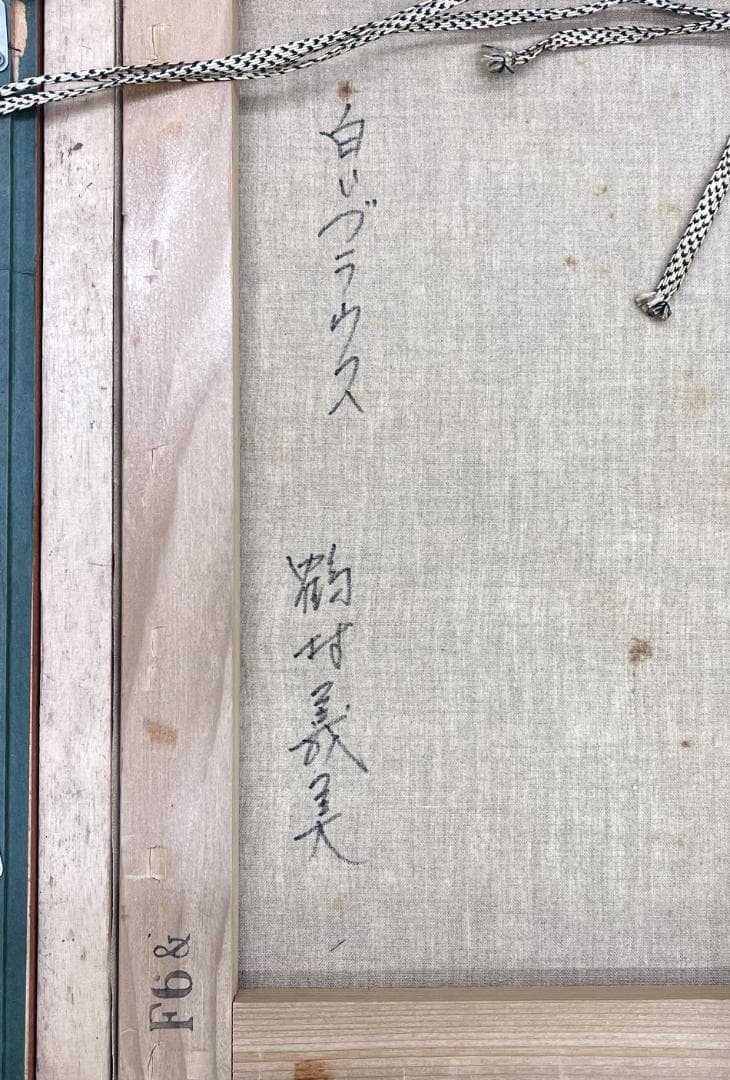 白いブラウス
鶴村義美
F6 &